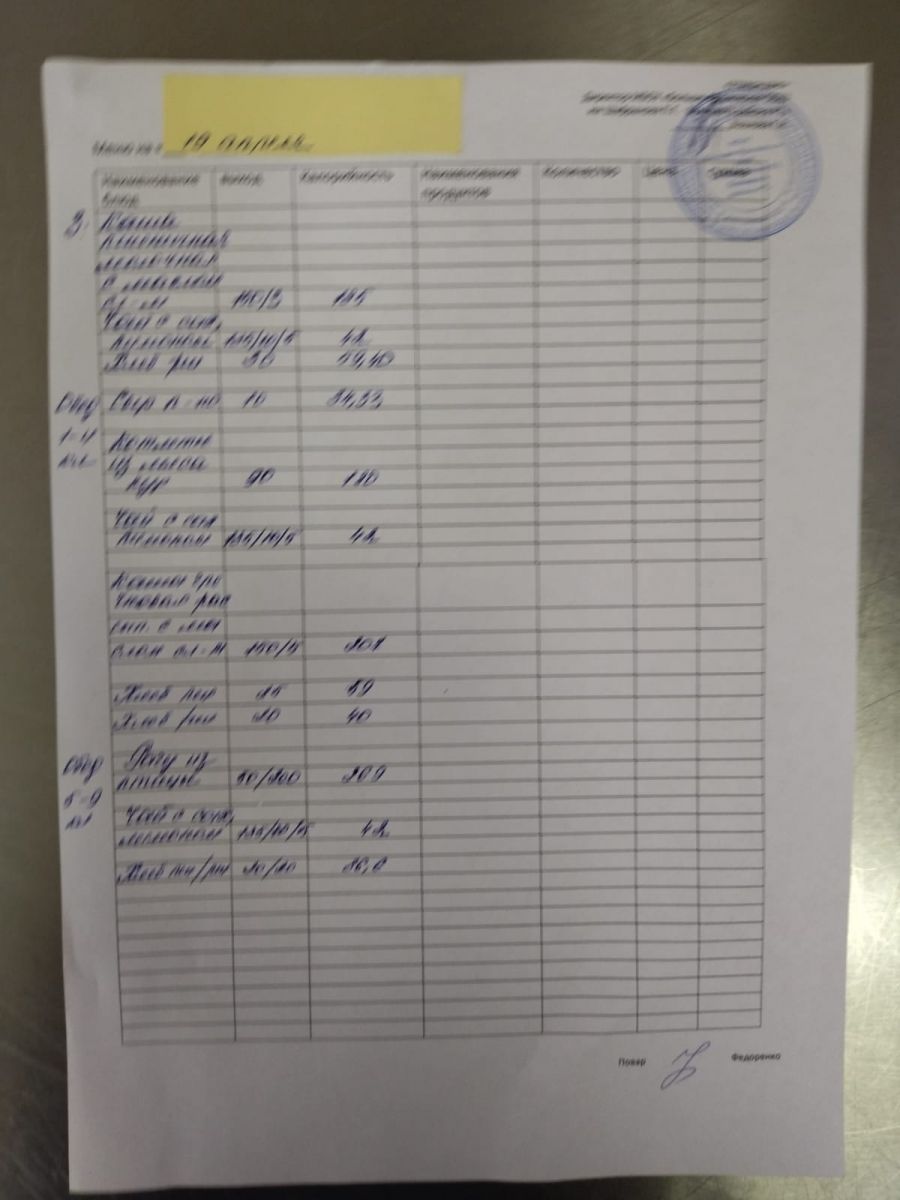 Меню на
19 апреля
Наименование блюд Выход Калорийность Наименование продуктов Количество Цена Сумма
З. Каша
пшеничная
молочная
с маслом
сл-м 150/3 185
Чай с сах,
лимоном 185/10/5 42
Хлеб рж 30 59,40
Обед Сыр п-но 10 34,33
1-4 Котлеты
кл из мяса
кур 90 180
Чай с сах
лимоном 185/10/5 42
Каша гре
чневая рас
сып. с ма
слом сл-м 150/5 201
Хлеб пш 25 59
Хлеб рж 20 40
Обед Рагу из
птицы 50/200 209
5-9 Чай с сах,
кл лимоном 185/10/5 42
Хлеб пш/рж 20/20 86,0
Повар Федоренко